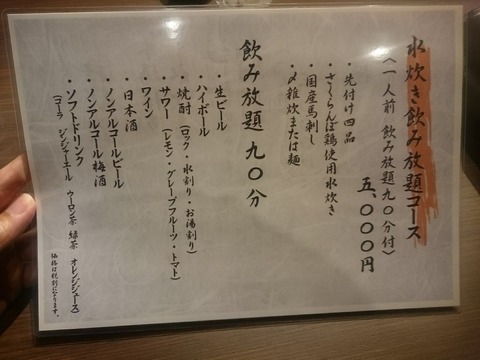 水炊き飲み放題コース
〈一人前 飲み放題九〇分付〉
五、〇〇〇円
・先付け四品
・さくらんぼ鶏使用水炊き
・国産馬刺し
・〆雑炊または麺
飲み放題 九〇分
・生ビール
・ハイボール
・焼酎(ロック・水割り・お湯割り)
・サワー(レモン・グレープフルーツ・トマト)
・ワイン
・日本酒
・ノンアルコールビール
・ノンアルコール梅酒
・ソフトドリンク
(コーラ ジンジャーエール ウーロン茶 緑茶 オレンジジュース)
価格は税別になります。